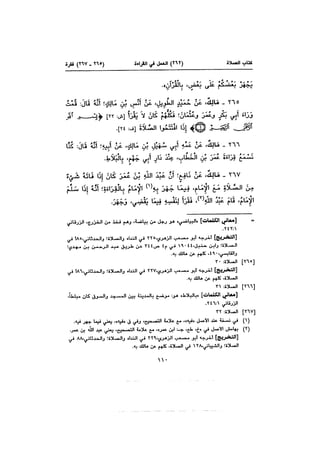 كتاب الصلاة (٢٦٢) العمل في القراءة (٢٦٥ - ٢٦٧) فقرة
يَجْهَرْ بَعْضُكُمْ عَلَى بَعْضٍ، بِالْقُرْآنِ».
٢٦٥ - مَالِكٌ، عَنْ حُمَيْدٍ الطَّوِيلِ، عَنْ أَنَسِ بْنِ مَالِكٍ؛ أَنَّهُ قَالَ: قُمْتُ
وَرَاءَ أَبِي بَكْرٍ وَعُمَرَ وَعُثْمَانَ؛ فَكُلُّهُمْ كَانَ لاَ يَقْرَأُ [ف: ٢٢] ﴿بِسْمِ اللَّهِ
الرَّحْمَنِ الرَّحِيمِ﴾ إِذَا افْتَتَحُوا الصَّلاَةَ [ف: ٢٤].
٢٦٦ - مَالِكٌ، عَنْ عَمِّهِ أَبِي سُهَيْلِ بْنِ مَالِكٍ، عَنْ أَبِيهِ؛ أَنَّهُ قَالَ: كُنَّا
نَسْمَعُ قِرَاءَةَ عُمَرَ بْنِ الْخَطَّابِ، عِنْدَ دَارِ أَبِي جَهْمٍ، بِالْبَلاَطِ.
٢٦٧ - مَالِكٌ، عَنْ نَافِعٍ؛ أَنَّ عَبْدَ اللَّهِ بْنَ عُمَرَ كَانَ إِذَا فَاتَهُ شَيْءٌ
مِنَ الصَّلاَةِ مَعَ الْإِمَامِ، فِيمَا جَهَرَ بِهِ(١) الْإِمَامُ بِالْقِرَاءَةِ؛ أَنَّهُ إِذَا سَلَّمَ
الْإِمَامُ، قَامَ عَبْدُ اللَّهِ(٢)، فَقَرَأَ لِنَفْسِهِ فِيمَا يَقْضِي، وَجَهَرَ.
= [معاني الكلمات] «البياضي»، هو رجل من بياضة، وهم فخذ من الخزرج، الزرقاني
٢٤٢:١
[التخريج] أخرجه أبو مصعب الزهري، ٢٢٥ في النداء والصلاة؛ والحدثاني، ٨٨ في
الصلاة؛ وابن حنبل، ١٩٠٤٤ في م٤ ص٣٤٤ عن طريق عبد الرحمن بن مهدي؛
والقابسي، ٤٩٠، كلهم عن مالك به.
[٢٦٥] الصلاة: ٣٠
[التخريج] أخرجه أبو مصعب الزهري، ٢٢٧ في النداء والصلاة؛ والحدثاني، ٨٦ في
الصلاة، كلهم عن مالك به.
[٢٦٦] الصلاة: ٣١
[معاني الكلمات] «بالبلاط» هو: موضع بالمدينة بين المسجد والسوق كان مبلطاً،
الزرقاني ٢٤٦:١
[٢٦٧] الصلاة: ٣٢
(١) في نسخة عند الأصل «فيه»، مع علامة التصحيح، وفي ق «فيه»، يعني فيما جهر فيه.
(٢) بهامش الأصل في «ع، طع، جـ: ابن عمر»، مع علامة التصحيح، يعني عبد الله بن عمر.
[التخريج] أخرجه أبو مصعب الزهري، ٢٢٩ في النداء والصلاة؛ والحدثاني، ٨٨ في
الصلاة؛ والشيباني، ١٢٨ في الصلاة، كلهم عن مالك به.
١١٠